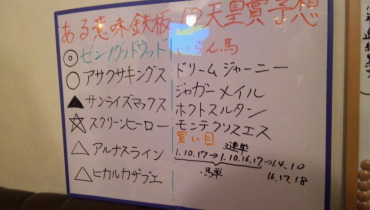 ある意味鉄板!?天皇賞予想
◎ゼンノグッドウッド
○アサクサキングス
▲サンライズマックス
☆スクリーンヒーロー
△アルナスライン
△ヒカルカザブエ
いらん馬
ドリームジャーニー
ジャガーメイル
ホクトスルタン
モンテクリスエス
買い目
3連単
1.10.17→1.10.16.17→1.4.10
16.17.18
馬単